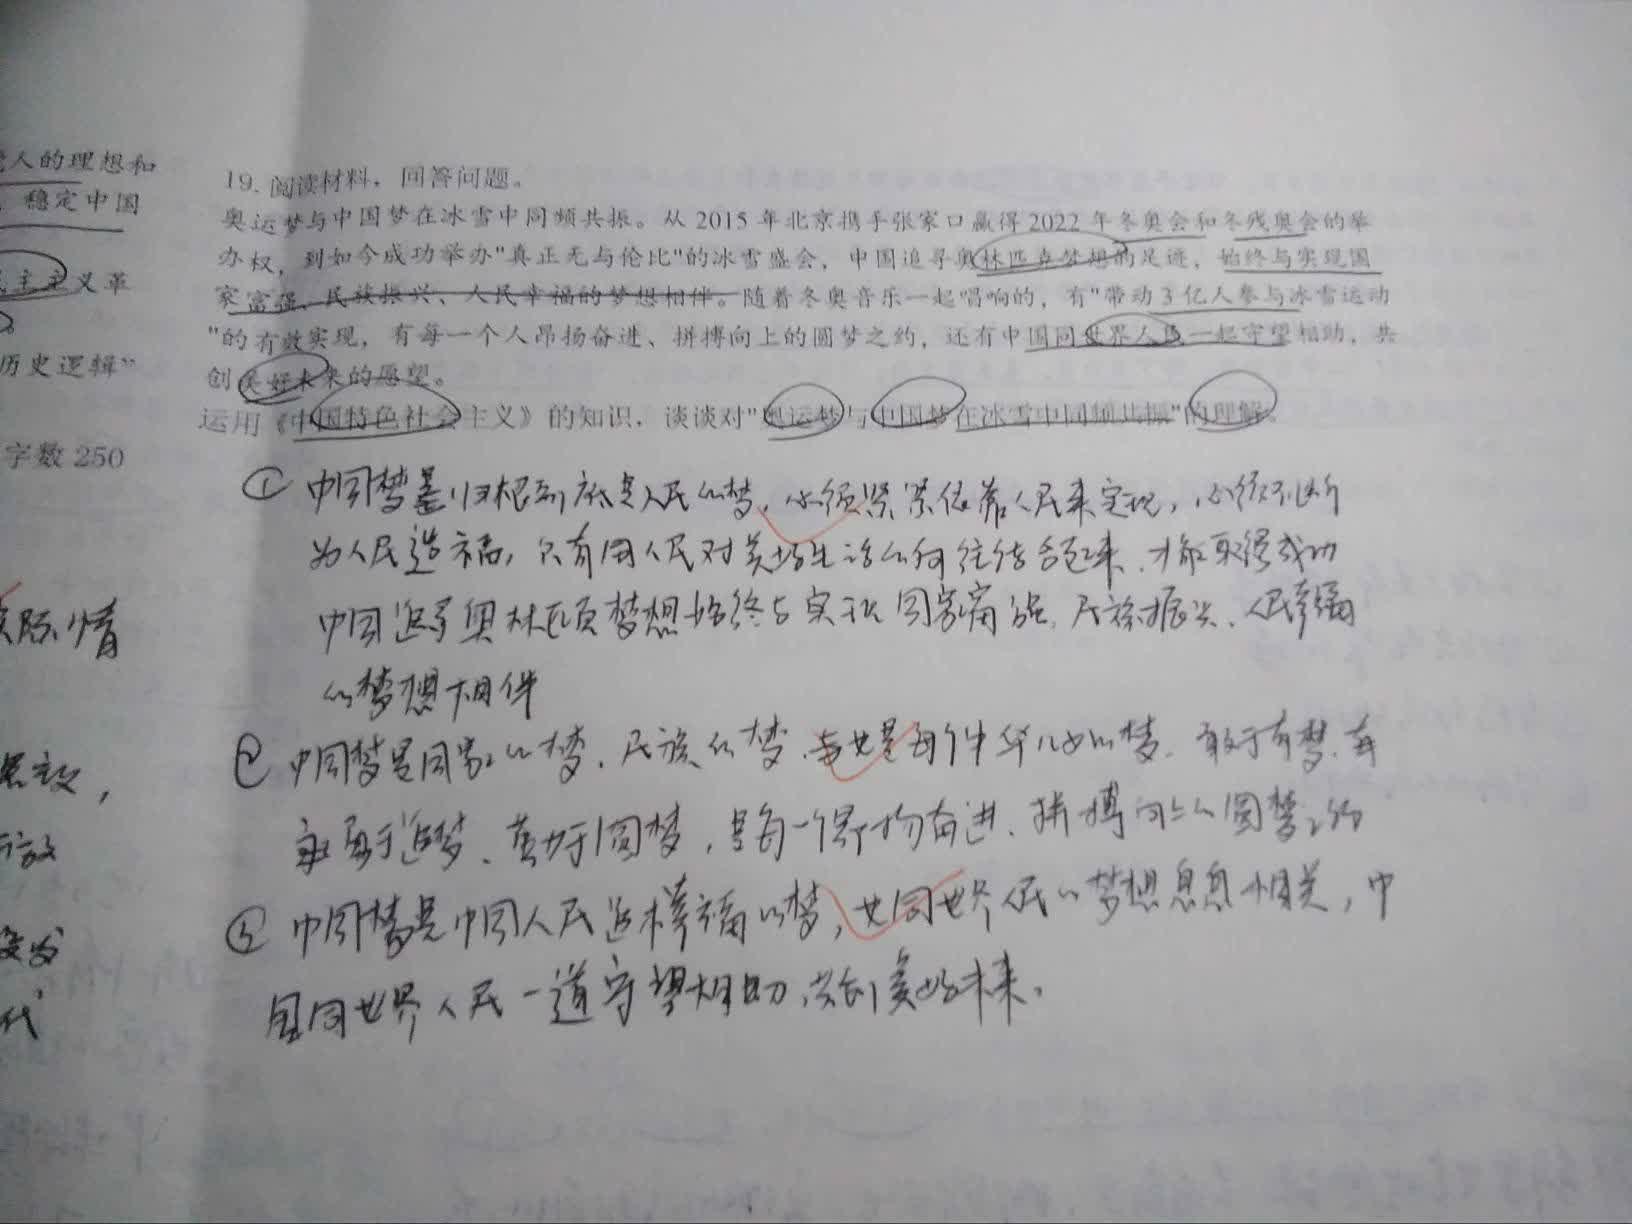 党人的理想和
稳定中国
民主主义革
历史逻辑”
字数 250
实际情
19. 阅读材料，回答问题。
奥运梦与中国梦在冰雪中同频共振。从 2015 年北京携手张家口赢得 2022 年冬奥会和冬残奥会的举
办权，到如今成功举办"真正无与伦比"的冰雪盛会，中国追寻奥林匹克梦想的足迹，始终与实现国
家富强、民族振兴、人民幸福的梦想相伴。随着冬奥音乐一起唱响的，有"带动 3 亿人参与冰雪运动
"的有效实现，有每一个人昂扬奋进、拼搏向上的圆梦之约，还有中国同世界人民一起守望相助，共
创美好未来的愿望。
运用《中国特色社会主义》的知识，谈谈对"奥运梦与中国梦在冰雪中同频共振"的理解。
① 中国梦归根到底是人民的梦，必须紧紧依靠人民来实现，必须不断
为人民造福，只有同人民对美好生活的向往结合起来，才能取得成功
中国追寻奥林匹克梦想始终与实现国家富强、民族振兴、人民幸福
的梦想相伴
② 中国梦是国家的梧、民族的梦，也是每个中华儿女的梦。敢于有梦、
勇于追梦、勤于圆梦，是每一个昂扬奋进、拼搏向上的圆梦之约
③ 中国梦是中国人民追求幸福的梦，也同世界人民的梦想息息相关，中
国同世界人民一道守望相助，共创美好未来。